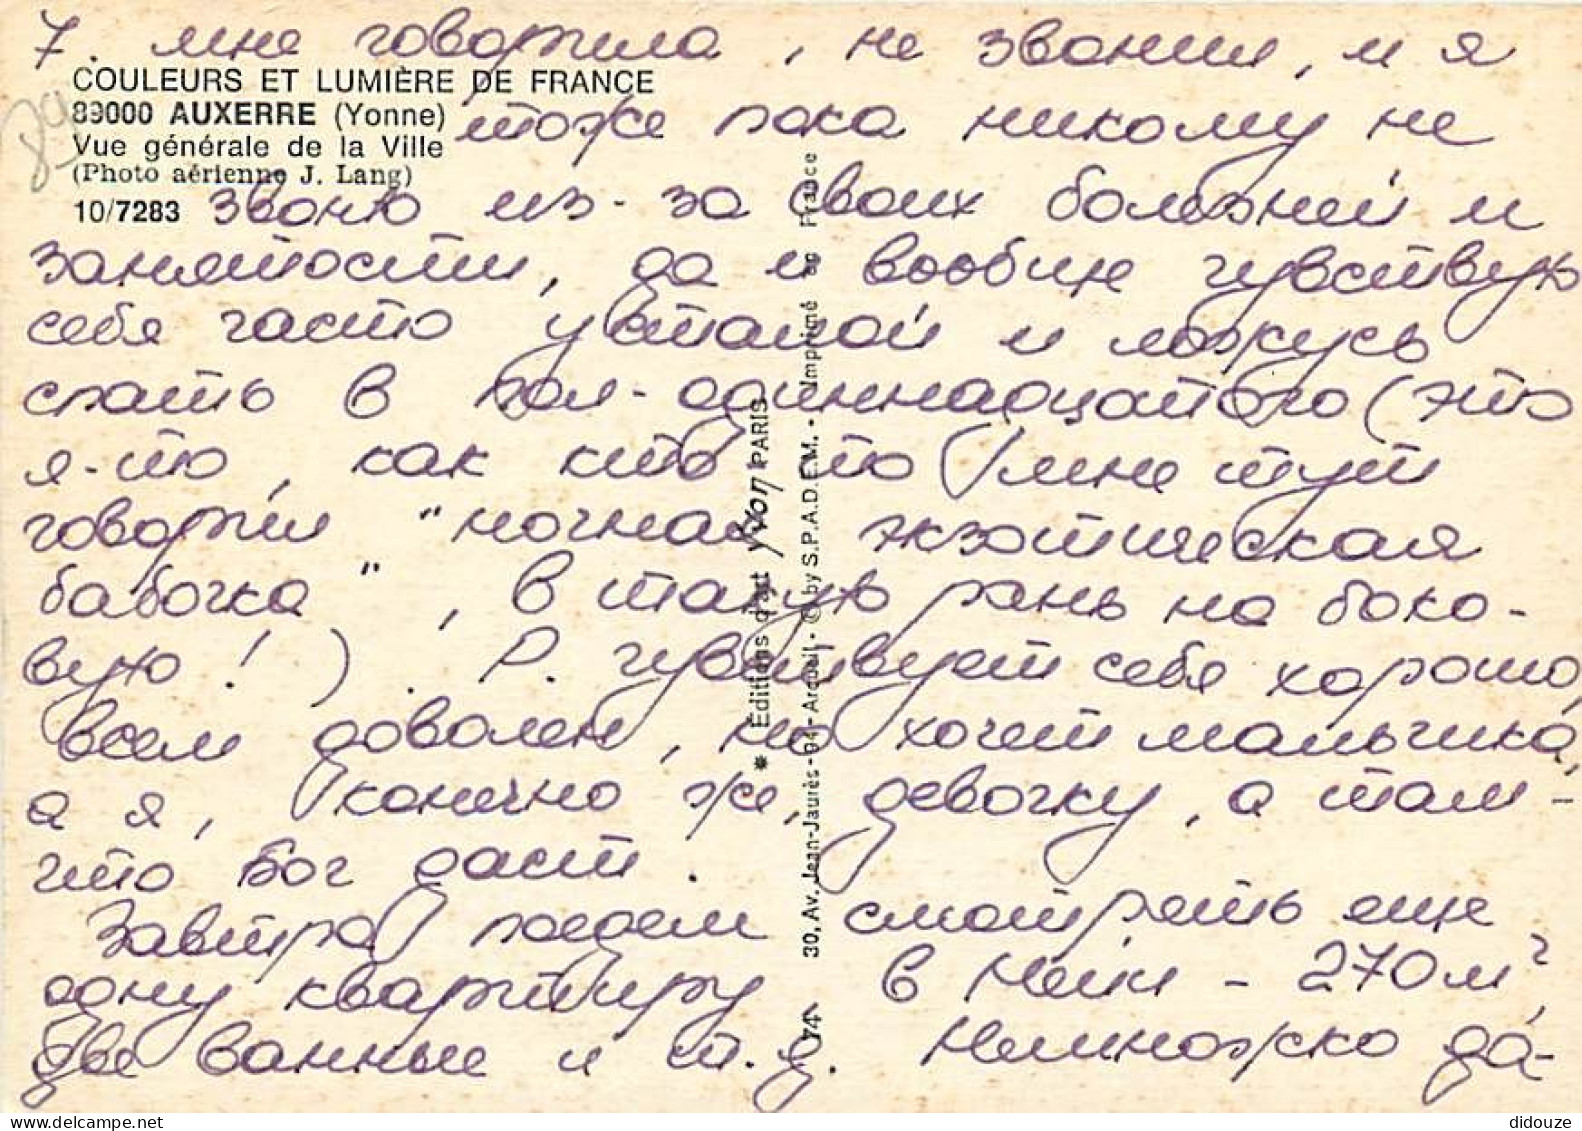 7. мне говорила, не звонил, и я
COULEURS ET LUMIÈRE DE FRANCE
89000 AUXERRE (Yonne)
тоже пока никому не
Vue générale de la Ville
(Photo aérienne J. Lang)
10/7283
звоню из-за своих болезней и
занятости, да и вообще чувствую
себя часто усталой и ложусь
спать в пол-одиннадцатого (это
я-то, как кто-то мне тут
говорил "ночная экзотическая
бабочка", в такую рань на боко-
вую!). Р. чувствует себя хорошо,
всем доволен, но хочет мальчика,
а я, конечно же, девочку, а там -
что Бог даст.
Завтра поедем смотреть еще
одну квартиру в Нейи - 270м²,
две ванные и т.д. Немножко да-
* Éditions d'art Yvon PARIS
30, Av. Jean-Jaurès - 94 - Arcueil - © by S.P.A.D.E.M. - Imprimé en France
74
89
didouze